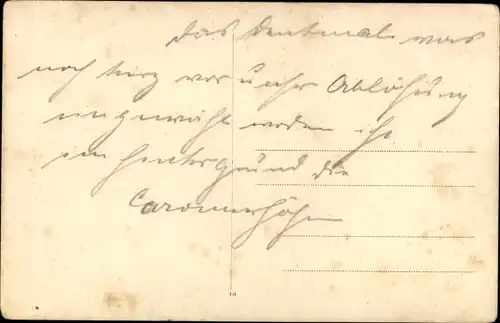 das Denkmal was
noch kurz vor unsr Ablösung
eingeweiht worden ist
im Hintergrund die
Caronnerhöhe
2